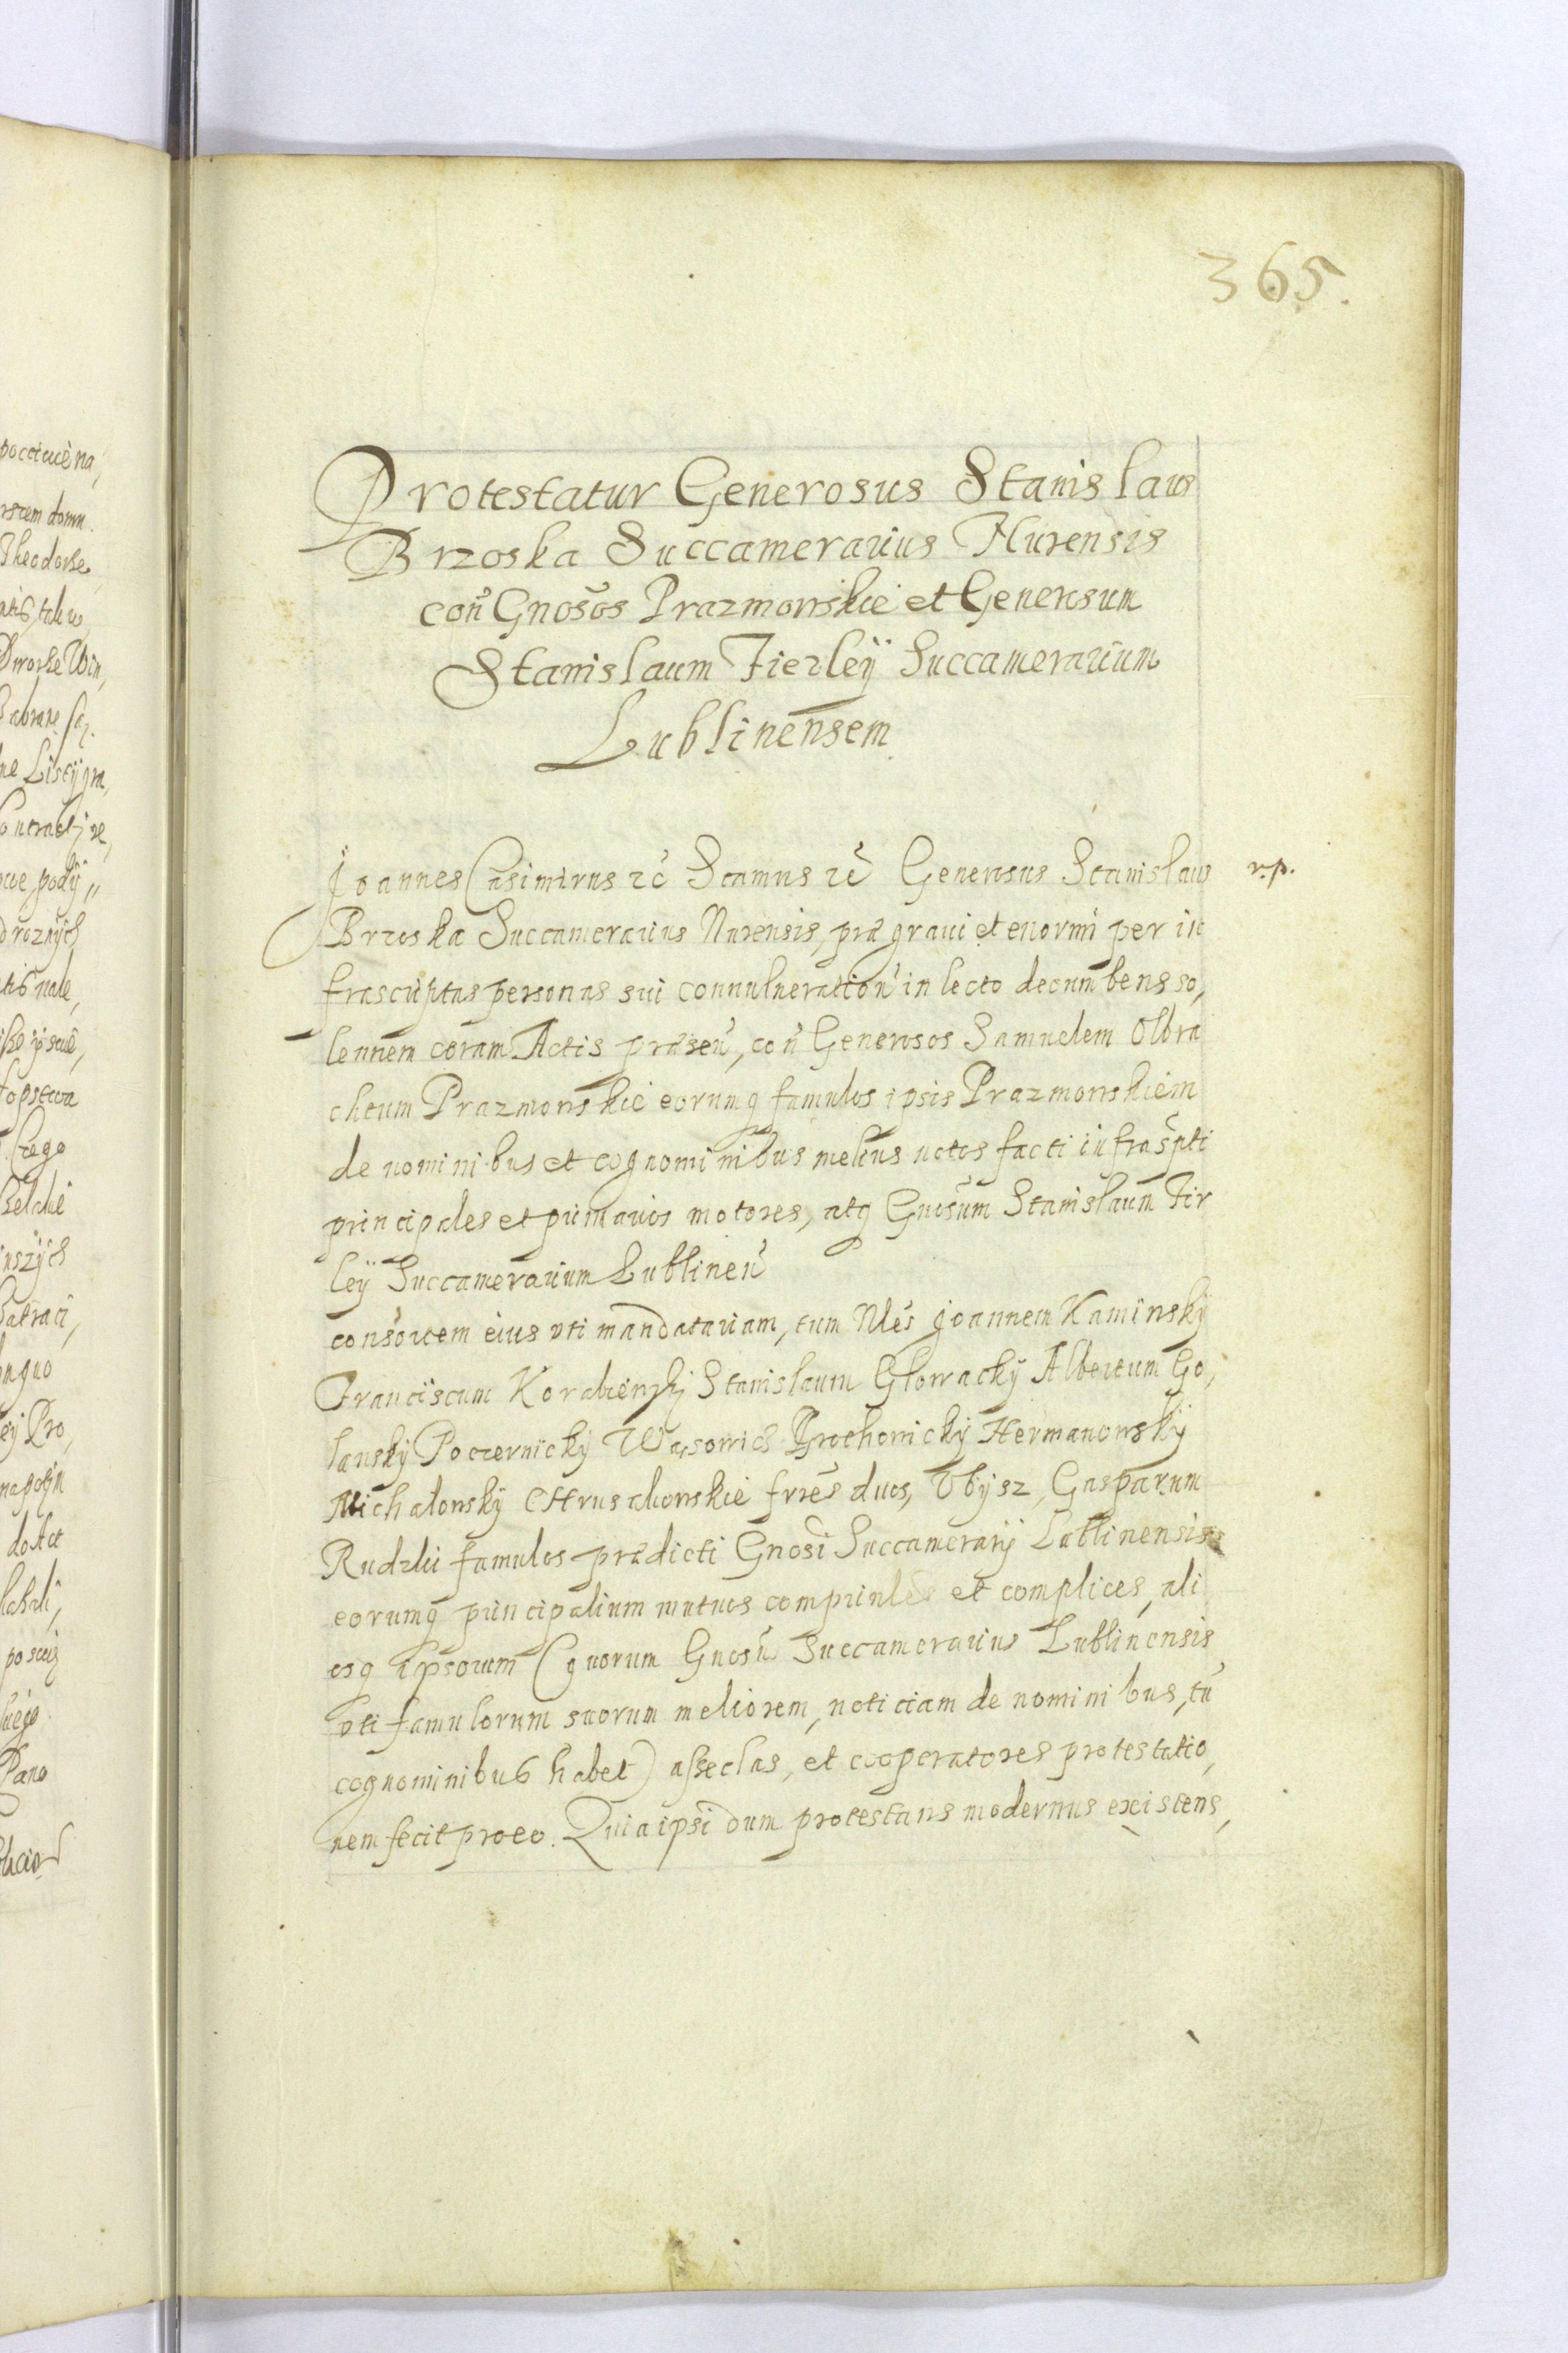 365.
Protestatur Generosus Stanislaus
Brzoska Succamerarius Nurensis
con̄ Gnosos Prazmowskie et Generosum
Stanislaum Fierleÿ Succamerarium
Lublinensem
Joannes Casimirus etc̄ Scamus etc̄ Generosus Stanislaus r.p.
Brzoska Succamerarius Nurensis, præ graui et enormi per in
frascriptas personas sui conuulneration̄ in lecto decumbens so,
lennem coram Actis præsen̄, con̄ Generosos Samuelem Olbra
chtum Prazmowskie eorumq famulos ipsis Prazmowskiem
de nominibus et cognominibus melius notos facti infraspti
principales et primarios motores, atq Gnosum Stanislaum Fir
leÿ Succamerarium Lublinen̄
consortem eius vti mandatariam, tum Nles Joannem Kaminskÿ
Franciscum Korabienskj Stanislaum Glowackÿ Albertum Go,
lanskÿ Poczernickÿ Wąsowicz Grochowickÿ Hermanowskÿ
Michalowskÿ Chrusakowskie frēs duos, Vbÿsz, Gasparum
Rudzkii famulos prædicti Gnosi Succamerarÿ Lublinensis
eorumq principalium mutuos comprinles et complices, ali
osq ipsorum (quorum Gnosu Succamerarius Lublinensis
vti famulorum suorum meliorem, noticiam de nominibus, tū
cognominibus habet) asseclas, et cooperatores protestatio,
nem fecit pro eo. Quia ipsi dum protestans modernus existens,